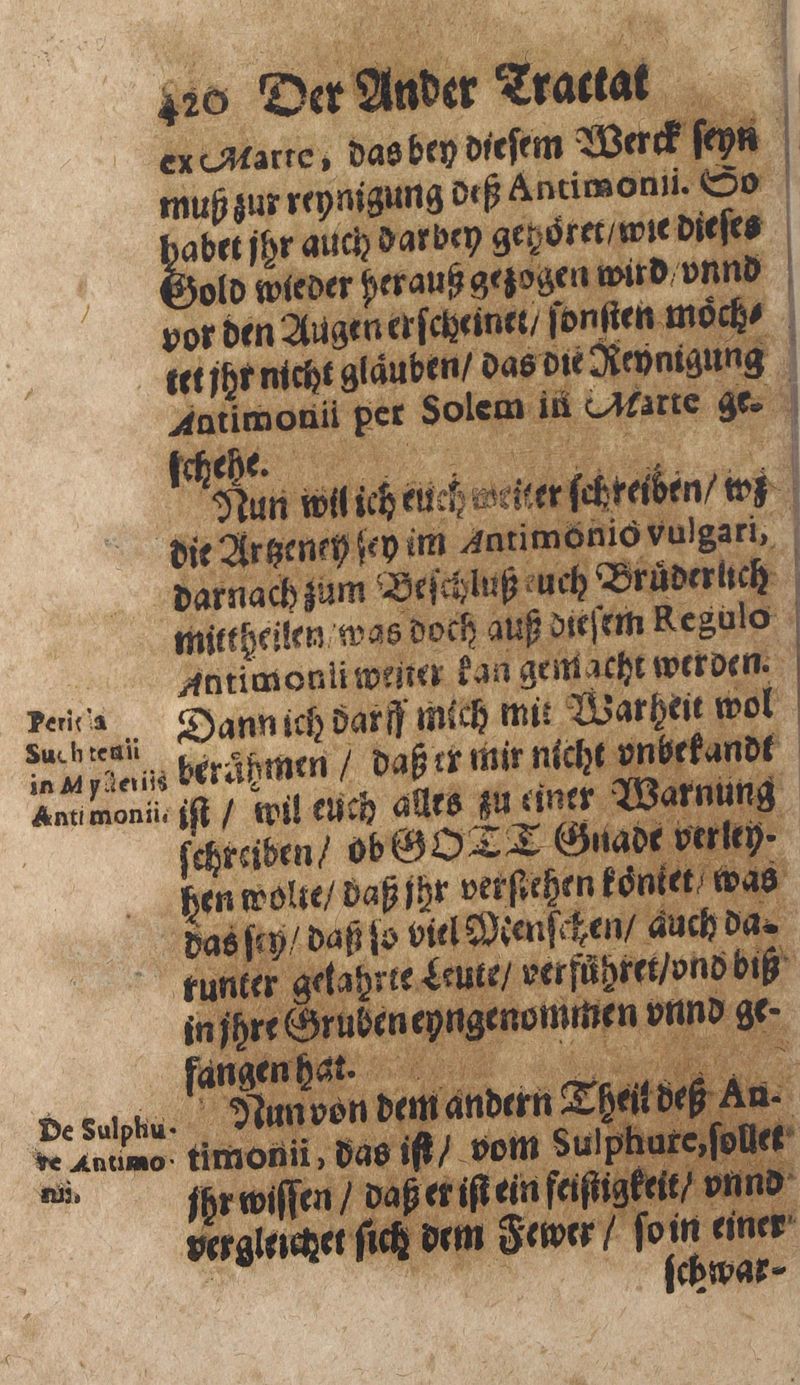 420 Der Ander Tractat
ex Marte, das bey diesem Werck seyn
muß zur reynigung deß Antimonii. So
habet jhr auch darbey gehöret/ wie dieses
Gold wieder herauß gezogen wird/ vnnd
vor den Augen erscheinet/ sonsten möch-
tet jhr nicht gläuben/ das die Reynigung
Antimonii per Solem in Marte ge-
schehe.
Nun wil ich euch weiter schreiben/ wz
die Artzeney sey im Antimonio vulgari,
darnach zum Beschluß euch Brüderlich
mittheilen/ was doch auß diesem Regulo
Antimonii weiter kan gemacht werden.
Dann ich darff mich mit Warheit wol
berühmen / daß er mir nicht vnbekandt
ist / wil euch alles zu einer Warnung
schreiben/ ob GOTT Gnade verley-
hen wolte/ daß jhr verstehen köntet/ was
das sey/ daß so viel Menschen/ auch da-
runter gelahrte Leute/ verführet/ vnd biß
in jhre Gruben eyngenommen vnnd ge-
fangen hat.
Nun von dem andern Theil deß An-
timonii, das ist/ vom Sulphure, sollet
jhr wissen / daß er ist ein feistigkeit/ vnnd
vergleichet sich dem Fewer / so in einer
schwar-
in Mysteriis
Antimonii.
De Sulphu-
re Antimo-
nii.